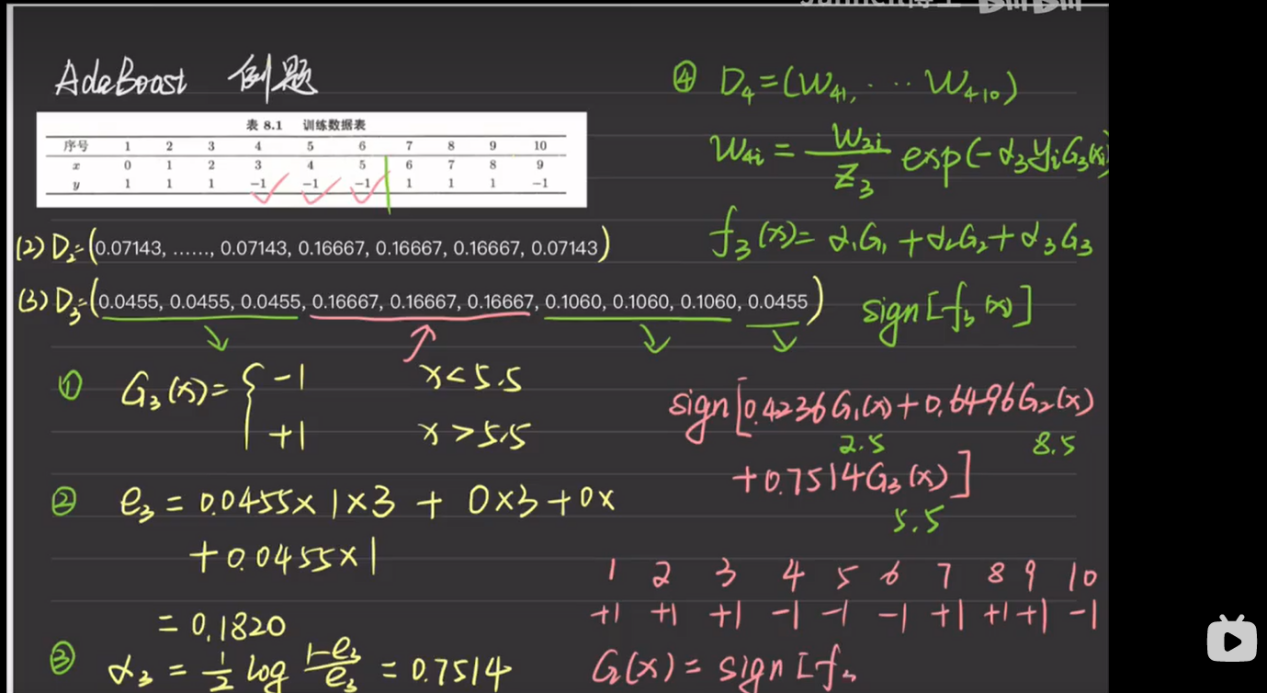 AdaBoost 例题
表 8.1 训练数据表
序号 1 2 3 4 5 6 7 8 9 10
x 0 1 2 3 4 5 6 7 8 9
y 1 1 1 -1 -1 -1 1 1 1 -1
(2) D₂=(0.07143, ……, 0.07143, 0.16667, 0.16667, 0.16667, 0.07143)
(3) D₃=(0.0455, 0.0455, 0.0455, 0.16667, 0.16667, 0.16667, 0.1060, 0.1060, 0.1060, 0.0455)
① G₃(x)= { -1 x<5.5
+1 x>5.5
② e₃ = 0.0455×1×3 + 0×3+0×
+0.0455×1
= 0.1820
③ α₃ = 1/2 log (1-e₃)/e₃ = 0.7514
④ D₄=(W₄₁, ··· W₄₁₀)
W₄ᵢ = W₃ᵢ/Z₃ exp(-α₃yᵢG₃(xᵢ)
f₃(x)= α₁G₁+α₂G₂+α₃G₃
sign[f₃(x)]
sign[0.4236G₁(x)+0.6496G₂(x)
2.5 8.5
+0.7514G₃(x)]
5.5
1 2 3 4 5 6 7 8 9 10
+1 +1 +1 -1 -1 -1 +1 +1 +1 -1
G(x) = sign[f₃